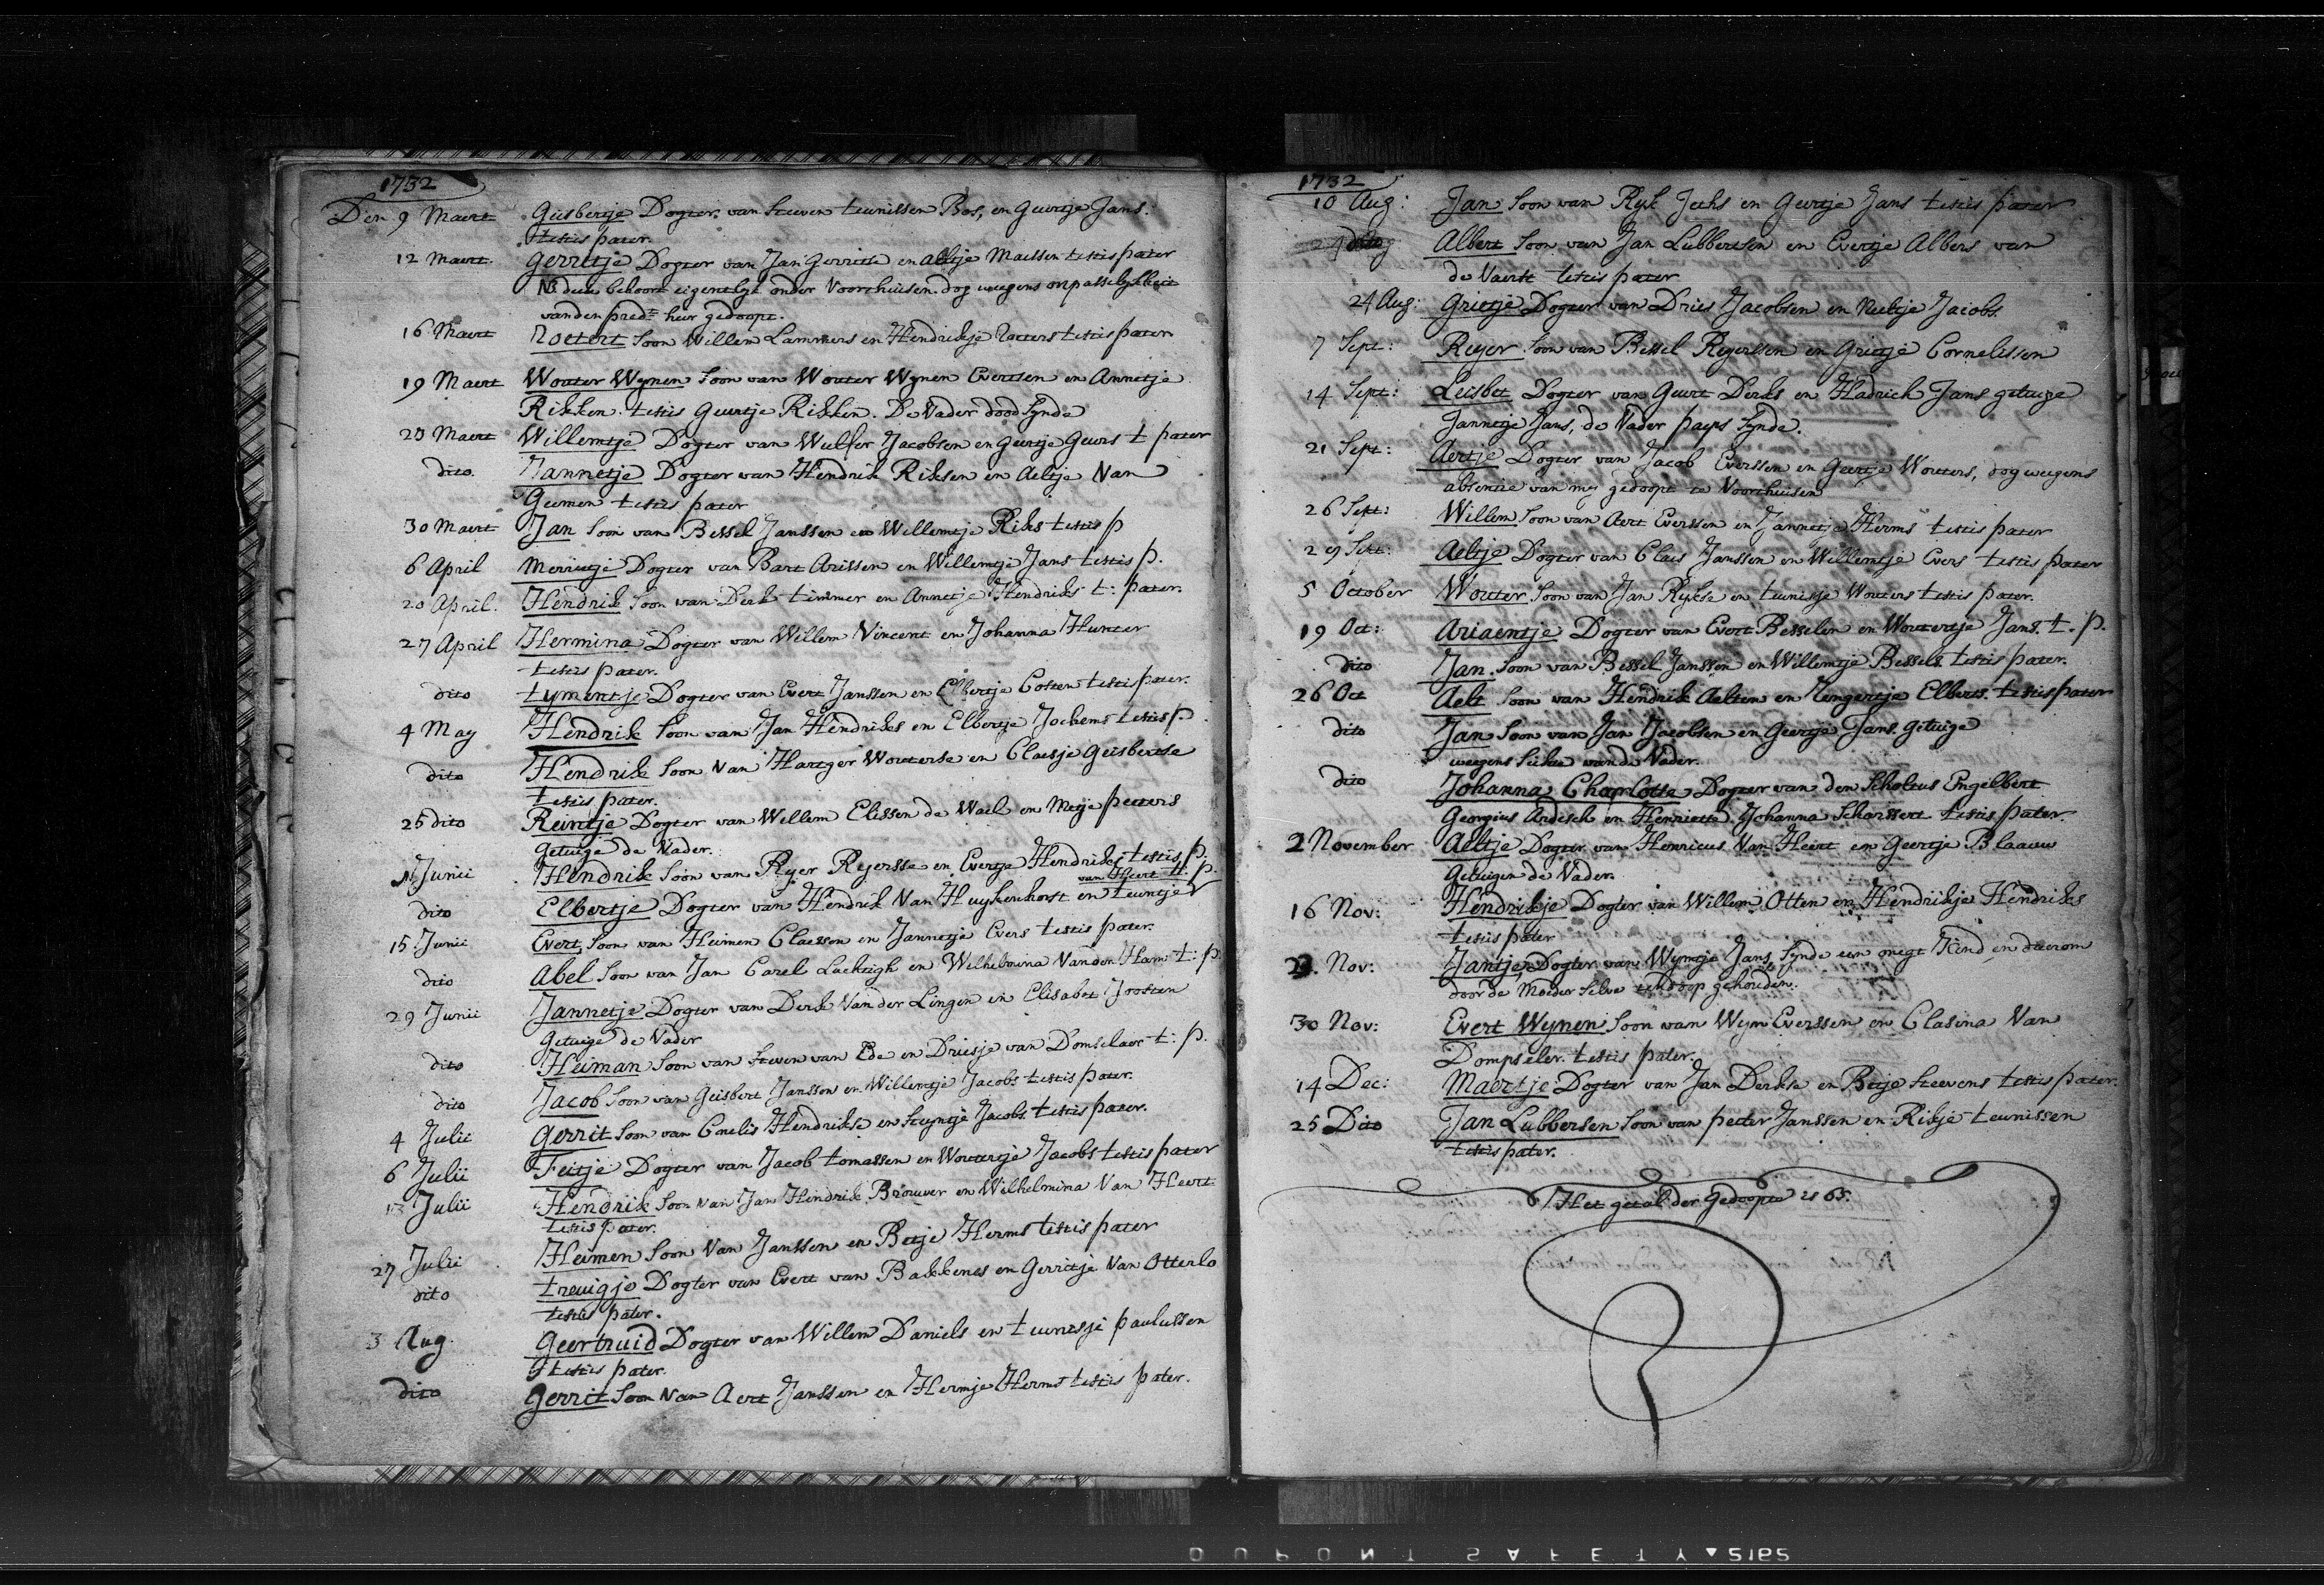 1732
Den 9 Maert Gisbertje Dogter van Steven Teunissen Bos, en Geurtje Jans.
testis pater.
12 Maert. Gerritje Dogter van Jan Gerritse en Aeltje Maessen testis pater
NB dese behoort eigentlyk onder Voorthuisen. dog weegens onpasselykheit
van den predt. hier gedoopt.
16 Maert Roetert Soon Willem Lammers en Hendrikje Roeters testis pater
19 Maert Wouter Wynen Soon van Wouter Wynen Evertsen en Annetje
Rikken. testis Geurtje Rikken. De Vader dood synde
23 Maert Willemtje Dogter van Wulfer Jacobsen en Geertje Geurs t pater
dito. Jannetje Dogter van Hendrik Riksen en Aeltje Van
Geemen testis pater
30 Maert Jan Soon van Bessel Janssen en Willemtje Riks testis p
6 April Merritje Dogter van Bart Arissen en Willemtje Jans testis p.
20 April. Hendrik Soon van Derk Timmer en Annetje Hendriks t: pater.
27 April Hermina Dogter van Willem Vincent en Johanna Hunter
testis pater.
dito Tymentje Dogter van Evert Janssen en Elbertje Costen testis pater.
4 May Hendrik Soon van Jan Hendriks en Elbertje Jochems testis p
dito Hendrik Soon Van Hartger Wouterse en Claesje Geisbertse
testis pater.
25 dito Reintje Dogter van Willem Elissen de Wael en Metje peeters
Getuige de Vader.
Junii Hendrik Soon van Ryer Ryersse en Evertje Hendriks testis p.
van Heert tt. p.
dito Elbertje Dogter van Hendrik Van Huykenhorst en Teuntje
15 Junii Evert Soon van Heimen Claessen en Jannetje Evers testis pater.
dito Abel Soon van Jan Carel Lackrigh en Wilhelmina Van den Ham t: p
29 Junii Jannetje Dogter van Derk Van der Lingen en Elisabet Joosten
Getuige de Vader
dito Heiman Soon van Steven van Ede en Driesje van Domselaer t: p.
dito Jacob Soon van Geisbert Janssen en Willemtje Jacobs testis pater.
4 Julii Gerrit Soon van Cnelis Hendrikse en Stuyntje Jacobs testis pater.
6 Julii Feitje Dogter van Jacob Tomassen en Woutertje Jacobs testis pater
13 Julii Hendrik Soon Van Jan Hendrik Brouwer en Wilhelmina Van Heert
testis pater.
27 Julii Heimen Soon Van Janssen en Betje Herms testis pater
dito Treuigje Dogter van Evert van Bakkenes en Gerritje Van Otterlo
testis pater.
3 Aug. Geertruid Dogter van Willem Daniels en Teunisje paulussen
testis pater.
dito Gerrit Soon Van Aert Janssen en Hermje Herms testis pater.
1732
10 Aug: Jan Soon van Ryk Jechs en Geurtje Jans testis pater
Albert Soon van Jan Lubbertsen en Evertje Albers van
de Vaerst testis pater
24 Aug: Grietje Dogter van Dries Jacobsen en Neeltje Jacobs.
7 Sept: Reyer Soon van Bessel Reyerssen en Grietje Cornelissen
14 Sept: Leisbet Dogter van Geurt Derks en Hadrich Jans getuige
Jannetje Jans, de Vader paeps synde.
21 Sept: Aertje Dogter van Jacob Everssen en Geertje Wouters, dog weegens
absentie van my gedoopt te Voorthuisen
26 Sept: Willem Soon van Aert Everssen en Jannetje Herms testis pater
29 Sept: Aeltje Dogter van Claes Janssen en Willemtje Evers testis pater
5 October Wouter Soon van Jan Rykse en Teunisje Wouters testis pater.
19 Oct: Ariaentje Dogter van Evert Besselen en Woutertje Jans. t. p.
dito Jan Soon van Bessel Janssen en Willemtje Bessels testis pater.
26 Oct Aelt Soon van Hendrik Aelten en Rengertje Elberts. testis pater
dito Jan Soon van Jan Jacobsen en Geertje Jans. Getuige
weegens siekte van de Vader.
dito Johanna Charlotta Dogter van den Scholtus Engelbert
Georgius Ardesch en Henrietta Johanna Scharssert testis pater.
2 November Aeltje Dogter van Henricus Van Heert en Geertje Blaauw
Getuigen de Vader.
16 Nov: Hendrikje Dogter van Willem Otten en Hendrikje Hendriks
testis pater
Nov: Jantje Dogter van Wymtje Jans, synde een onegt Kind en daerom
door de Moeder selve ten doop gehouden.
30 Nov: Evert Wynen Soon van Wyn Everssen en Clasina Van
Dompseler. testis pater.
14 Dec: Maertje Dogter van Jan Derkse en Betje Steevens testis pater.
25 Dito Jan Lubbersen Soon van peeter Janssen en Rikje Teunissen
testis pater.
Het getal der Gedoopte is 65.
DUPONT SAFETY 5165